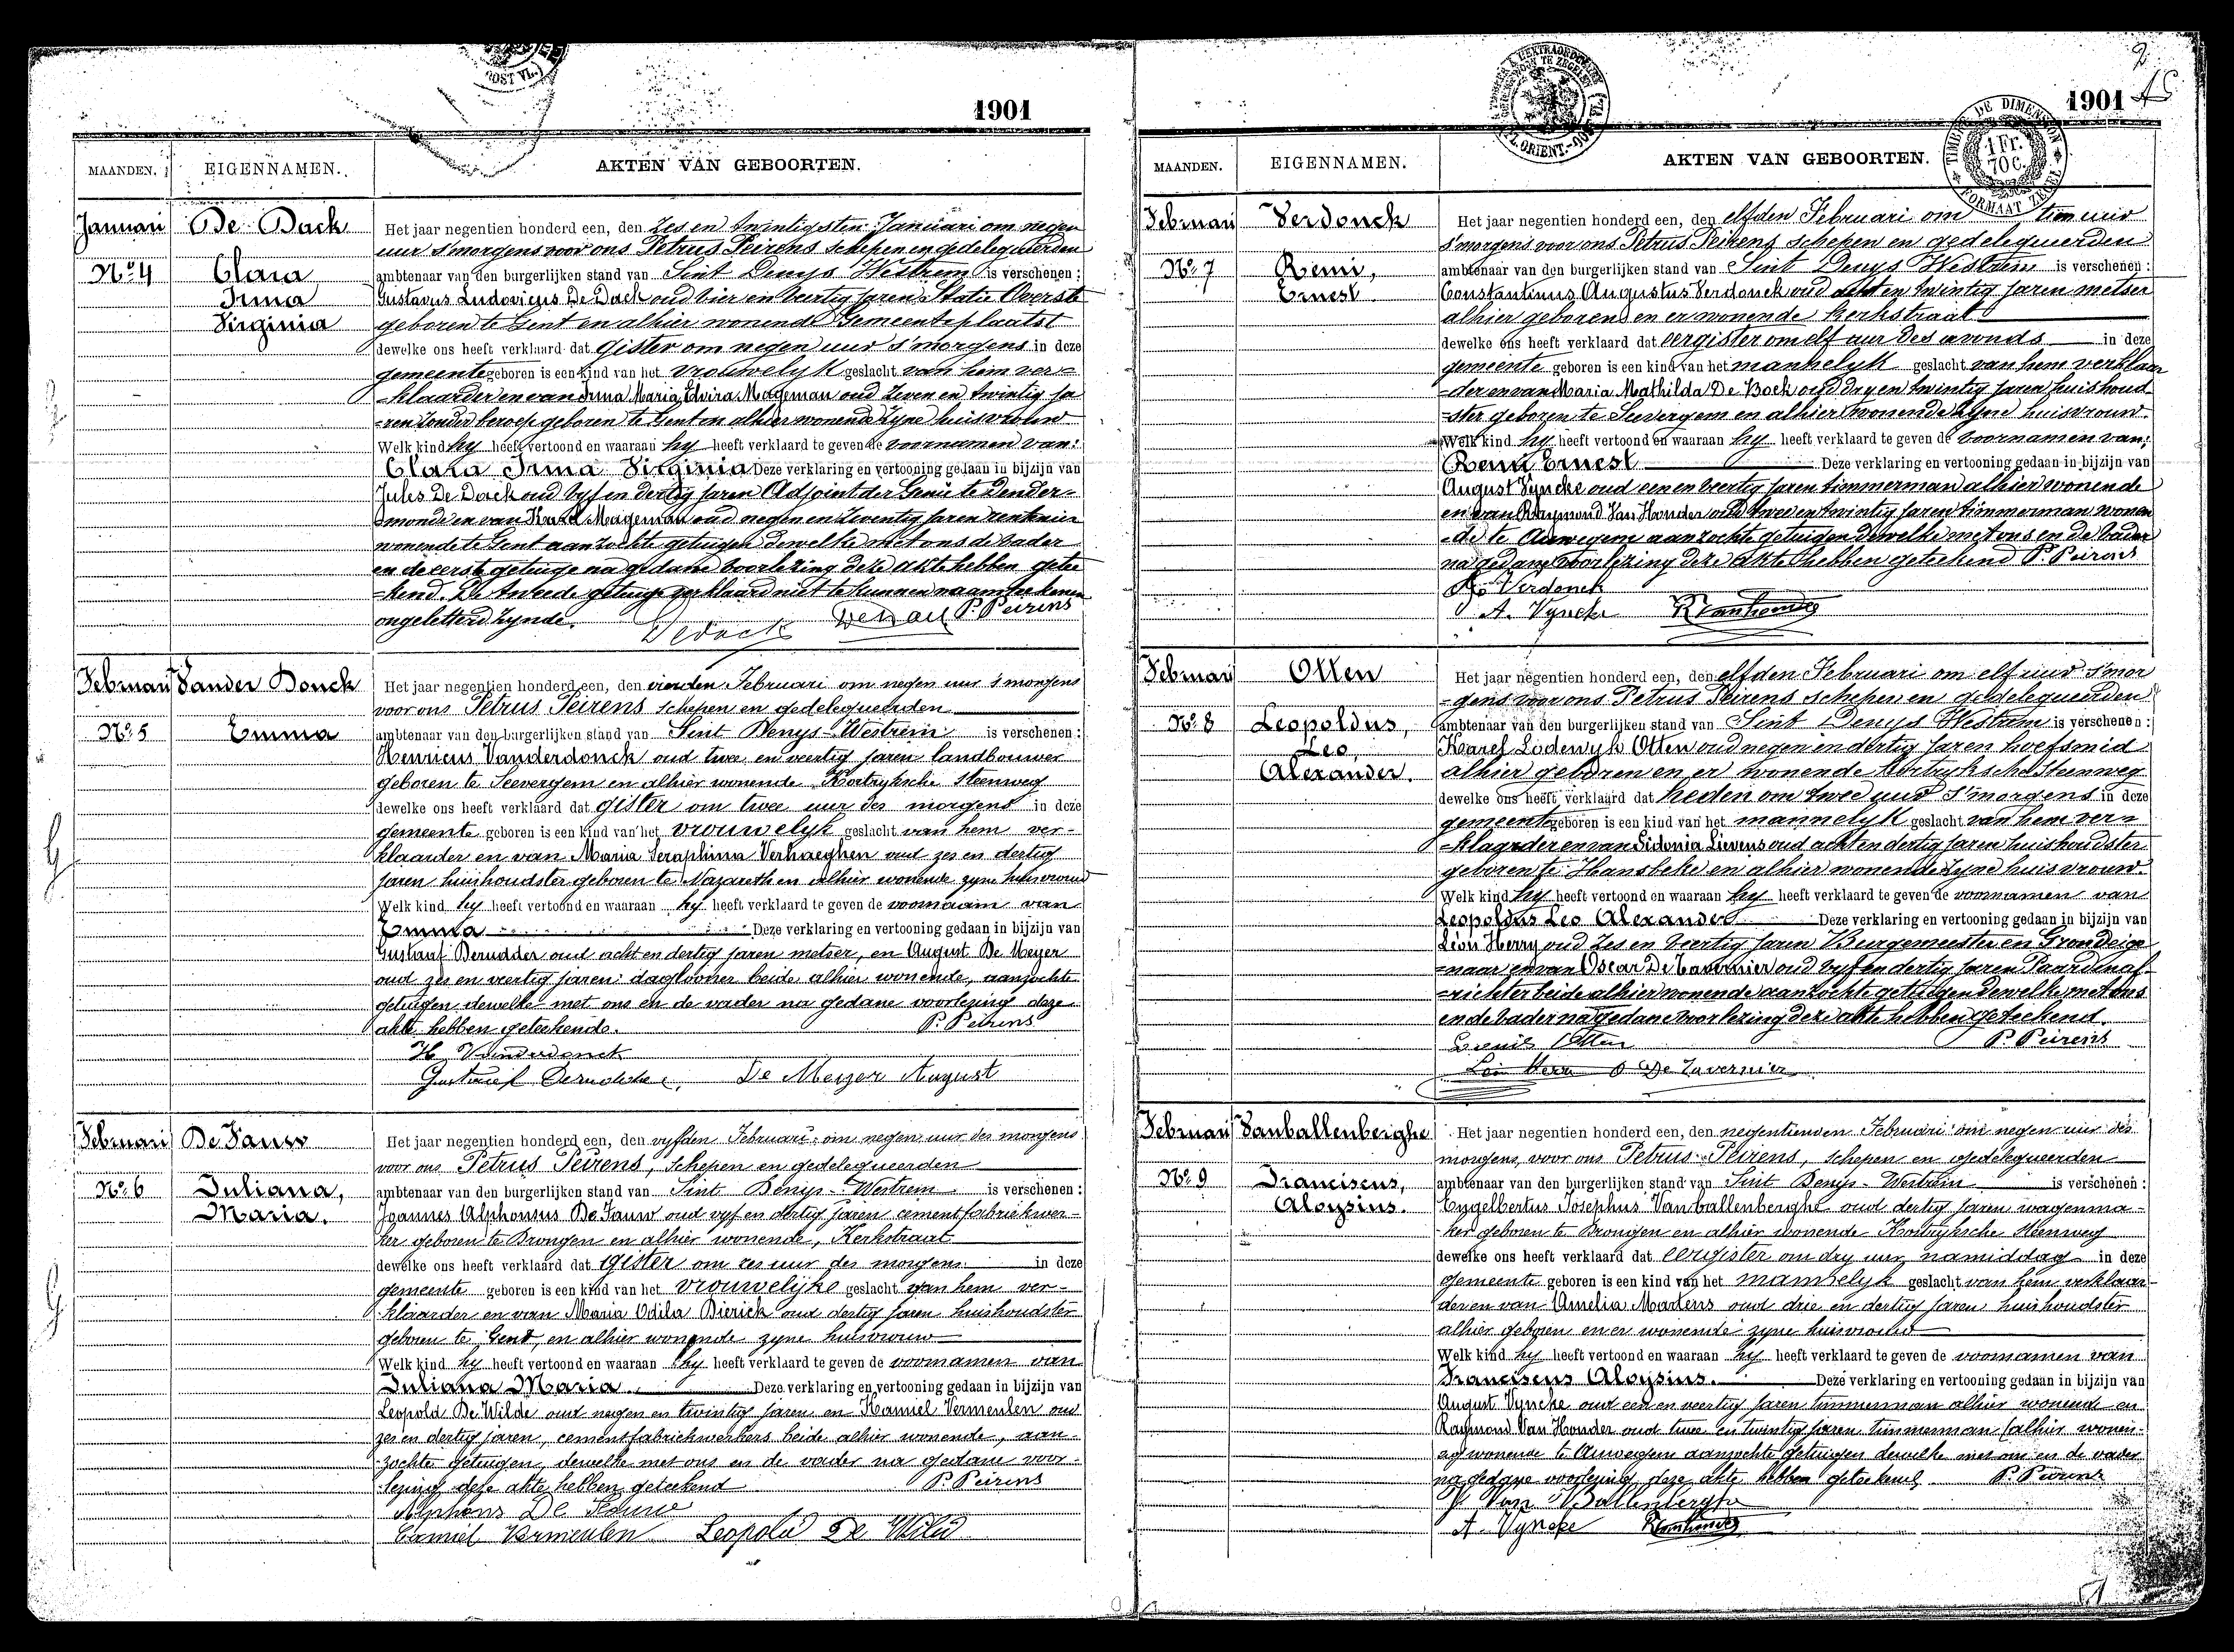 1901
MAANDEN. EIGENNAMEN. AKTEN VAN GEBOORTEN.
Januari De Dack Het jaar negentien honderd een, den Zes en twintigsten Januari om negen
uur s'morgens voor ons Petrus Peirens schepen en gedelegueerden
No. 4 Clara, ambtenaar van den burgerlijken stand van Sint Denys Westrem is verschenen:
Irma Gustavus Ludovicus De Dack oud vier en veertig jaren Statie Overste
Virginia geboren te Gent en alhier wonende Gemeenteplaatst
dewelke ons heeft verklaard dat Gister om negen uur s'morgens in deze
gemeente geboren is een kind van het vrouwelyk geslacht van hem ver-
klaarder en van Irma Maria Elvira Mageman oud zeven en twintig ja
-ren zonder beroep geboren te Gent en alhier wonende zyne huisvrouw
Welk kind hy heeft vertoond en waaraan hy heeft verklaard te geven de voornamen van:
Clara Irma Virginia Deze verklaring en vertooning gedaan in bijzijn van
Jules De Dack oud vyf en dertig jaren Adjoint der Genie te Dender-
monde en van Karel Mageman oud negen en zeventig jaren rentenier
wonende te Gent aanzochte getuigen dewelke met ons de vader
en de eerste getuige na gedane voorlezing deze akte hebben getee
-kend. De tweede getuige verklaard niet te kunnen naamteekenen
ongeletterd zynde. Dedack P. Peirens
Februari Vander Donck Het jaar negentien honderd een, den vierden Februari om negen uur s'morgens
voor ons Petrus Peirens schepen en gedelegueerden
No. 5 Emma ambtenaar van den burgerlijken stand van Sint Denys-Westrem is verschenen:
Henricus Vanderdonck oud twee en veertig jaren landbouwer
geboren te Seevergem en alhier wonende Kortryksche steenweg
dewelke ons heeft verklaard dat gister om twee uur des morgens in deze
gemeente geboren is een kind van het vrouwelyk geslacht van hem ver-
klaarder en van Maria Seraphina Verhaeghen oud zes en dertig
jaren huishoudster geboren te Nazareth en alhier wonende zyne huisvrouw
Welk kind hy heeft vertoond en waaraan hy heeft verklaard te geven de voornaam van
Emma Deze verklaring en vertooning gedaan in bijzijn van
Gustaaf Derudder oud acht en dertig jaren metser, en August De Meyer
oud zes en veertig jaren daglooner beide alhier wonende, aanzochte
getuigen dewelke met ons en de vader na gedane voorlezing deze
akte hebben geteekende. P. Peirens
H Vanderdonck
Gustaaf Derudder. De Meyer August
Februari De Pauw Het jaar negentien honderd een, den vyfden Februari om negen uur des morgens
voor ons Petrus Peirens, Schepen en gedelegueerden
No. 6 Juliana, ambtenaar van den burgerlijken stand van Sint Denys-Westrem is verschenen:
Maria. Joannes Alphonsus De Pauw oud vyf en dertig jaren cementfabriekwer-
ker geboren te Drongen en alhier wonende, Kerkstraat
dewelke ons heeft verklaard dat gister om zes uur des morgens in deze
gemeente geboren is een kind van het vrouwelijke geslacht van hem ver-
klaarder en van Maria Odila Dierick oud dertig jaren huishoudster
geboren te Gent, en alhier wonende zyne huisvrouw
Welk kind hy heeft vertoond en waaraan hy heeft verklaard te geven de voornamen van
Juliana Maria. Deze verklaring en vertooning gedaan in bijzijn van
Leopold De Wilde oud negen en twintig jaren en Kamiel Vermeulen oud
zes en dertig jaren, cementfabriekwerkers beide alhier wonende, aan-
zochte getuigen, dewelke met ons en de vader na gedane voor-
lezing deze akte hebben geteekend P. Peirens
Alphons De Pauw
Camiel Vermeulen Leopold De Wild
2
1901
TIMBRE DE DIMENSION
1 Fr. 70 C.
FORMAAT ZEGEL
MAANDEN. EIGENNAMEN. AKTEN VAN GEBOORTEN.
Februari Verdonck Het jaar negentien honderd een, den elfden Februari om tien uur
s'morgens voor ons Petrus Peirens schepen en gedelegueerden
No. 7 Remi, ambtenaar van den burgerlijken stand van Sint Denys Westrem is verschenen:
Ernest Constantinus Augustus Verdonck oud acht en twintig jaren metser
alhier geboren en er wonende kerkstraat
dewelke ons heeft verklaard dat eergister om elf uur des avonds in deze
gemeente geboren is een kind van het mannelyk geslacht van hem verklaar
-der en van Maria Mathilda De Bock oud dry en twintig jaren huishoud
-ster geboren te Seevergem en alhier wonende zyne huisvrouw.
Welk kind hy heeft vertoond en waaraan hy heeft verklaard te geven de voornamen van:
Remi Ernest Deze verklaring en vertooning gedaan in bijzijn van
August Vyncke oud een en veertig jaren timmerman alhier wonende
en van Raymond Van Honder oud twee en twintig jaren timmerman wonen
-de te Auwegem aanzochte getuigen dewelke met ons en de vader
na gedane voorlezing deze akte hebben geteekend P. Peirens
Verdonck
A. Vyncke
Februari Otten Het jaar negentien honderd een, den elfden Februari om elf uur s'mor
-gens voor ons Petrus Peirens schepen en gedelegueerden
No. 8 Leopoldus, ambtenaar van den burgerlijken stand van Sint Denys Westrem is verschenen:
Leo, Karel Lodewyk Otten oud negen en dertig jaren hoefsmid
Alexander. alhier geboren en er wonende Kortryksche Steenweg
dewelke ons heeft verklaard dat heden om twee uur s'morgens in deze
gemeente geboren is een kind van het mannelyk geslacht van hem ver-
-klaarder en van Sidonia Lievens oud acht en dertig jaren huishoudster
geboren te Hansbeke en alhier wonende zyne huisvrouw.
Welk kind hy heeft vertoond en waaraan hy heeft verklaard te geven de voornamen van
Leopoldus Leo Alexander Deze verklaring en vertooning gedaan in bijzijn van
Léon Herry oud zes en veertig jaren Burgemeester en Grondeige
-naar en van Oscar De Tavernier oud vyf en dertig jaren Paardenaf-
-richter beide alhier wonende aanzochte getuigen dewelke met ons
en de vader na gedane voorlezing deze akte hebben geteekend.
Otten P. Peirens
Léon Herry O De Tavernier
Februari Vanballenberghe Het jaar negentien honderd een, den negentienden Februari om negen uur des
morgens, voor ons Petrus Peirens, schepen en gedelegueerden
No. 9 Franciscus, ambtenaar van den burgerlijken stand van Sint Denys-Westrem is verschenen:
Aloysius. Engelbertus Josephus Vanballenberghe oud dertig jaren wagenma-
ker geboren te Drongen en alhier wonende Kortryksche Steenweg
dewelke ons heeft verklaard dat eergister om dry uur namiddag in deze
gemeente geboren is een kind van het mannelyk geslacht van hem verklaar-
der en van Amelia Martens oud drie en dertig jaren huishoudster
alhier geboren en er wonende zyne huisvrouw
Welk kind hy heeft vertoond en waaraan hy heeft verklaard te geven de voornamen van
Franciscus Aloysius. Deze verklaring en vertooning gedaan in bijzijn van
August Vyncke oud een en veertig jaren timmerman alhier wonende en
Raymond Van Honder oud twee en twintig jaren timmerman (alhier wonen-
wonende te Auwegem aanzochte getuigen dewelke met ons en de vader
na gedane voorlezing deze akte hebben geteekend P. Peirens
Van Ballenberghe
A. Vyncke